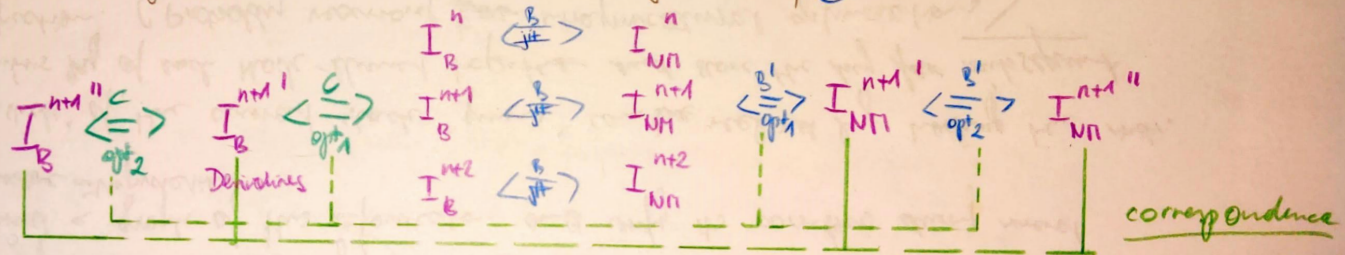 I_B^n <B/jit> I_NM^n
I_B^{n+1}'' <C = opt_2> I_B^{n+1}' <C = opt_1> I_B^{n+1} <B/jit> I_NM^{n+1} <B' = opt_1> I_NM^{n+1}' <B' = opt_2> I_NM^{n+1}''
Derivatines
I_B^{n+2} <B/jit> I_NM^{n+2}
correspondence